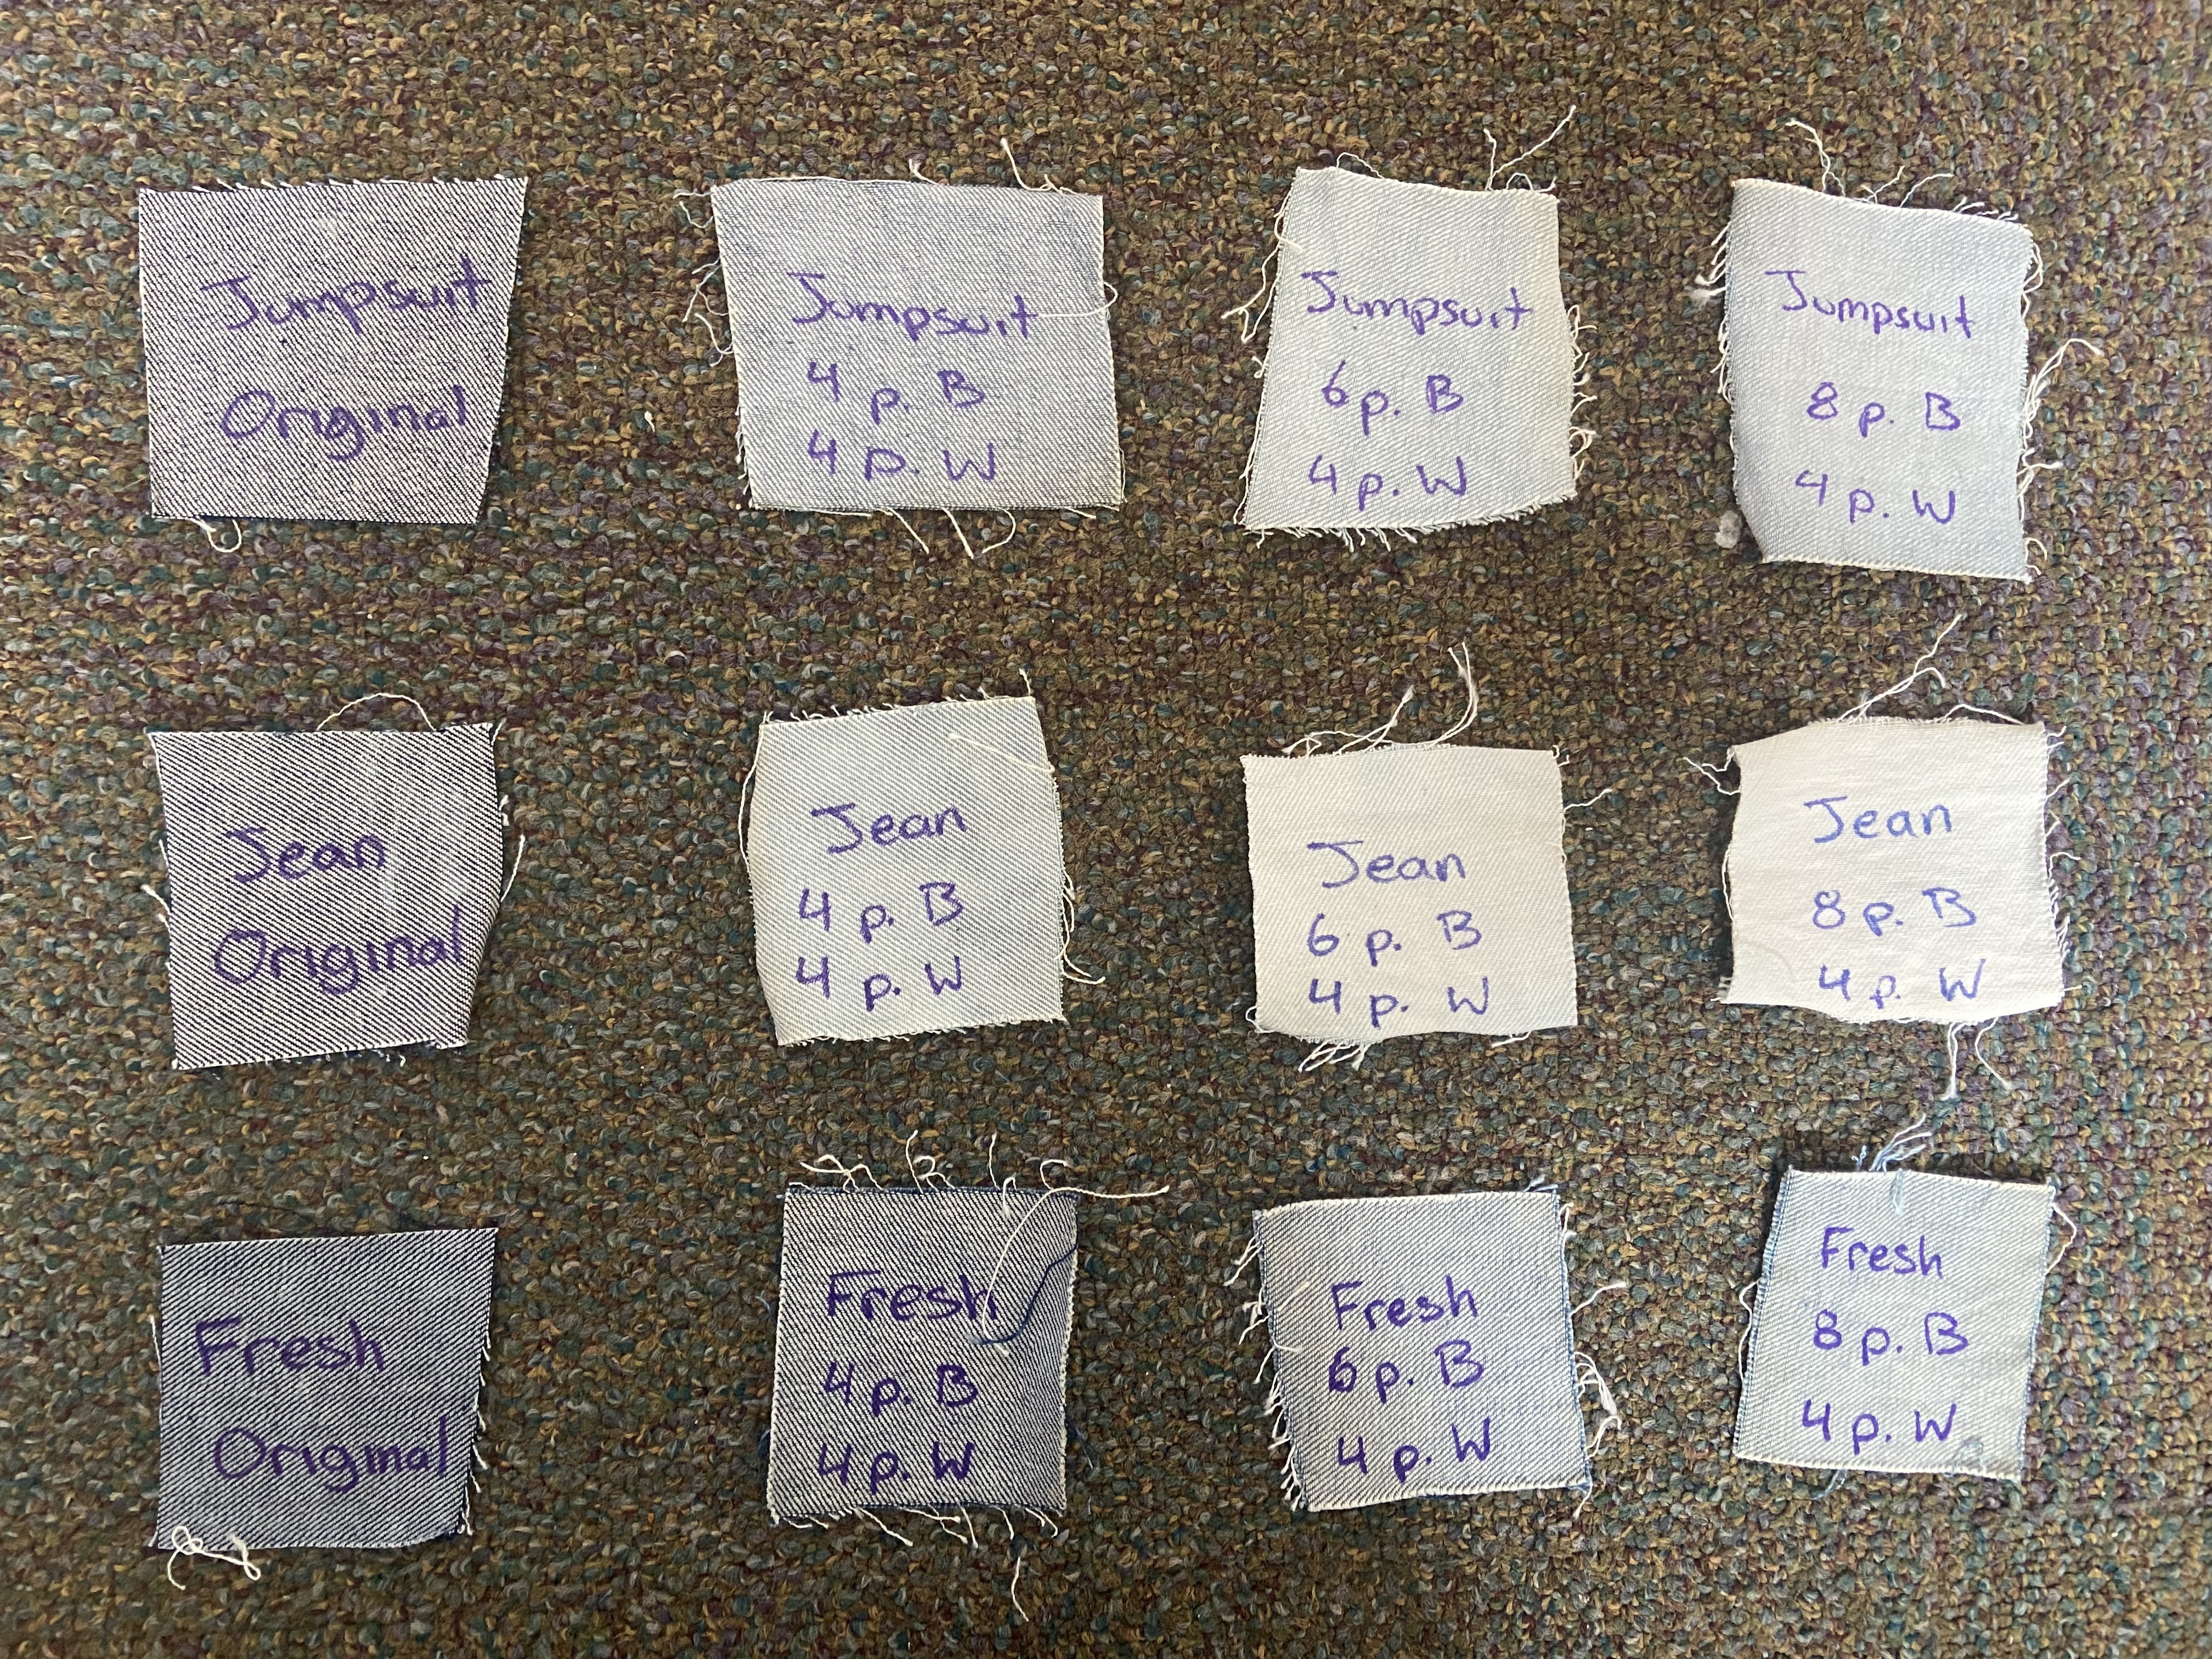 Jumpsuit
Original
Jumpsuit
4 p. B
4 p. W
Jumpsuit
6 p. B
4 p. W
Jumpsuit
8 p. B
4 p. W
Jean
Original
Jean
4 p. B
4 p. W
Jean
6 p. B
4 p. W
Jean
8 p. B
4 p. W
Fresh
Original
Fresh
4 p. B
4 p. W
Fresh
6 p. B
4 p. W
Fresh
8 p. B
4 p. W